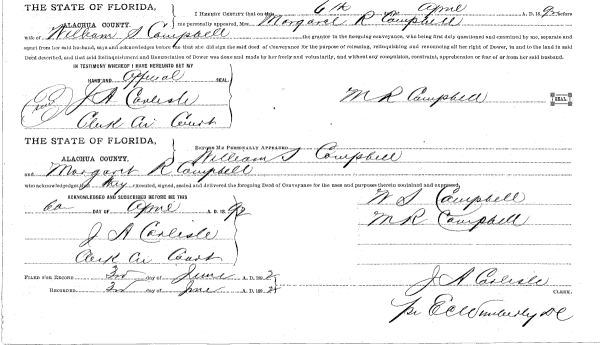 THE STATE OF FLORIDA,
ALACHUA COUNTY.
I HEREBY CERTIFY That on this 6th April A. D. 1892 before
me personally appeared, Mrs. Margaret R Campbell
wife of William S Campbell the grantor in the foregoing conveyance, who being first duly questioned and examined by me, separate and
apart from her said husband, says and acknowledges before me that she did sign the said deed of Conveyance for the purpose of releasing, relinquishing and renouncing all her right of Dower, in and to the land in said
Deed described, and that said Relinquishment and Renunciation of Dower was done and made by her freely and voluntarily, and without any compulsion, constraint, apprehension or fear of or from her said husband.
IN TESTIMONY WHEREOF I HAVE HEREUNTO SET MY
HAND AND official SEAL
J A Carlisle
Clerk Cir Court
M R Campbell SEAL
THE STATE OF FLORIDA,
ALACHUA COUNTY.
BEFORE ME PERSONALLY APPEARED William S Campbell
AND Margaret R Campbell
who acknowledged they executed, signed, sealed and delivered the foregoing Deed of Conveyance for the uses and purposes therein contained and expressed.
ACKNOWLEDGED AND SUBSCRIBED BEFORE ME THIS
6th DAY OF April A. D. 1892
J A Carlisle
Clerk Cir Court
W S Campbell
M R Campbell
FILED FOR RECORD 3rd day of June A. D. 1892
RECORDED 3rd day of June A. D. 1892
J A Carlisle
CLERK.
pr E C Wimberly DC